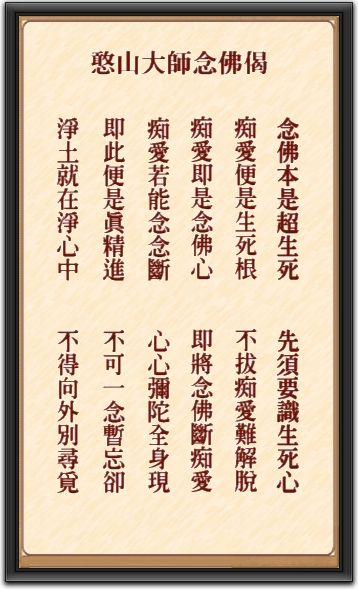 憨山大師念佛偈
念佛本是超生死 先須要識生死心
痴愛便是生死根 不拔痴愛難解脫
痴愛即是念佛心 即將念佛斷痴愛
痴愛若能念念斷 心心彌陀全身現
即此便是眞精進 不可一念暫忘卻
淨土就在淨心中 不得向外別尋覓